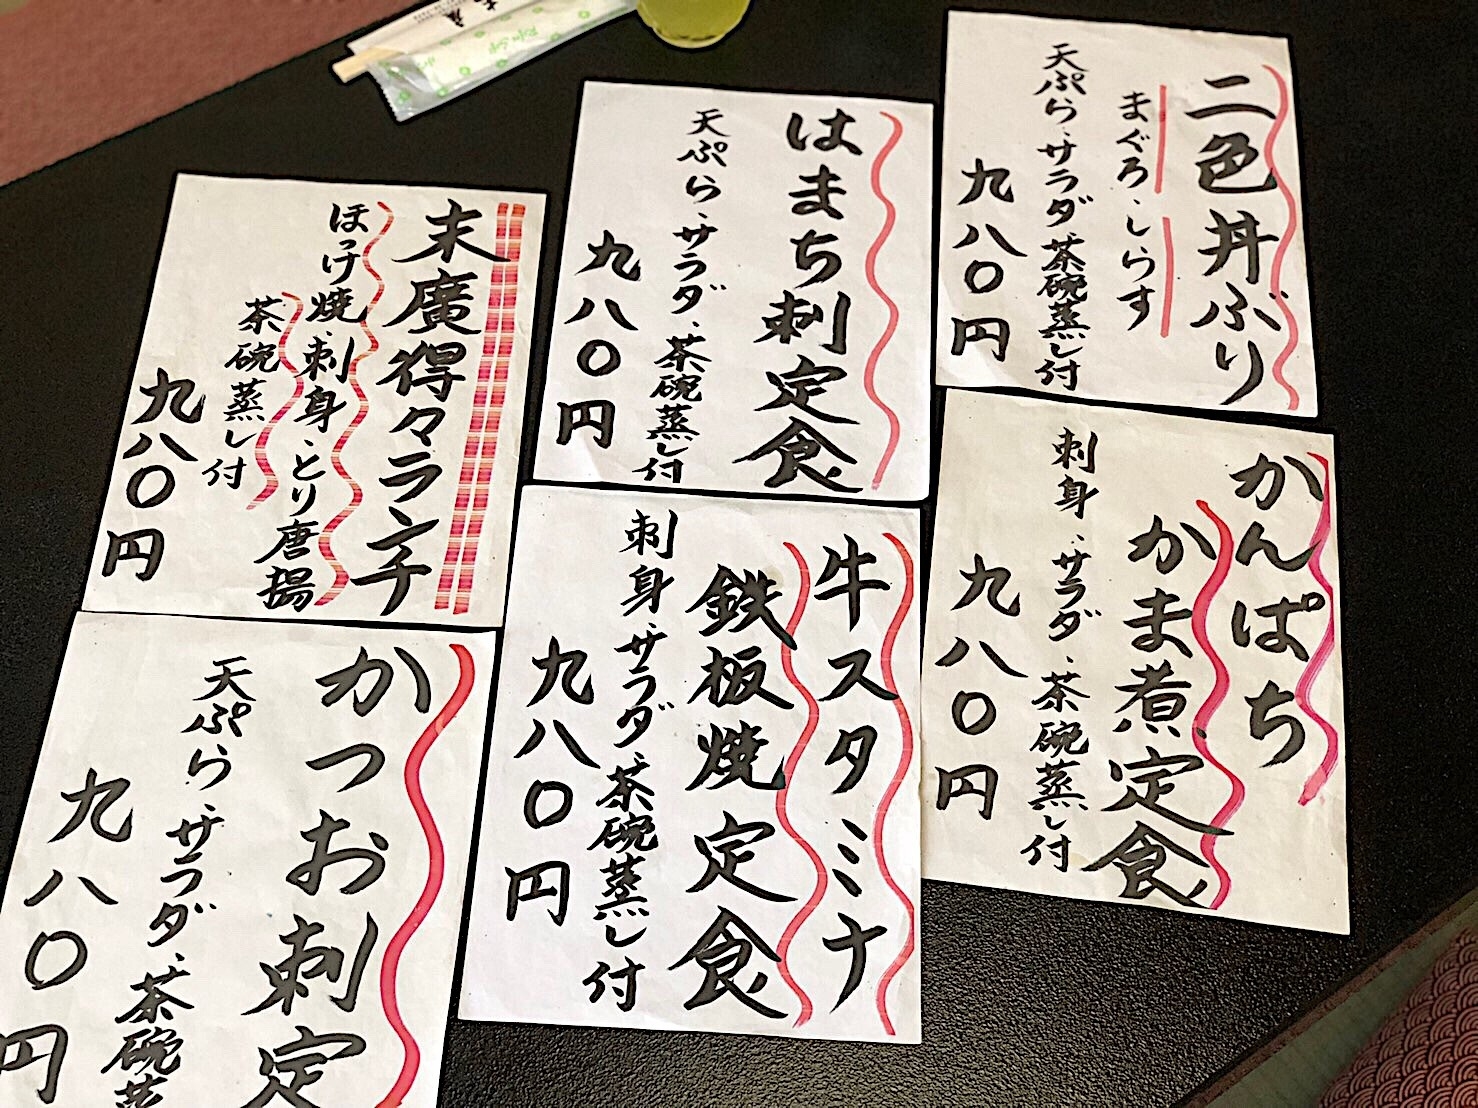 二色丼ぶり
まぐろ・しらす
天ぷら、サラダ、茶碗蒸し付
九八〇円
はまち刺定食
天ぷら、サラダ、茶碗蒸し付
九八〇円
末廣得々ランチ
ほっけ焼・刺身・とり唐揚
茶碗蒸し付
九八〇円
かんぱち
かま煮定食
刺身、サラダ、茶碗蒸し付
九八〇円
牛スタミナ
鉄板焼定食
刺身、サラダ、茶碗蒸し付
九八〇円
かつお刺定
天ぷら、サラダ、茶碗蒸
九八〇円